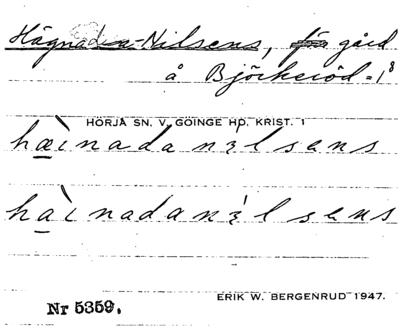 Hägnada-Nilsens, gård
å Björkeröd =1⁸
HÖRJA SN. V. GÖINGE HD. KRIST. 1
hæ̀inadanɛlsens
hàinadanɛ́lsens
ERIK W. BERGENRUD 1947.
Nr 5359.